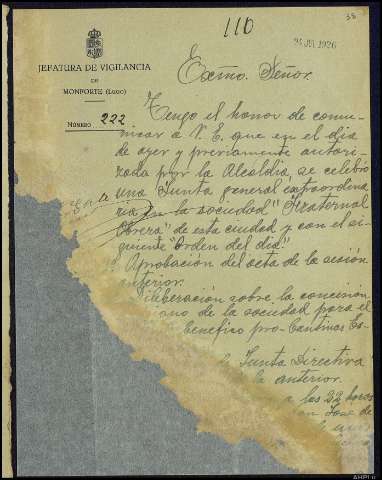 110
38
24 JUL 1926
JEFATURA DE VIGILANCIA
DE
MONFORTE (Lugo)
NÚMERO 222
Excmo. Señor.
Tengo el honor de comu-
nicar a V. E. que en el dia
de ayer y previamente autori-
zada por la Alcaldia, se celebró
una Junta general extraordina
ria en la sociedad "Fraternal
Obrera" de esta ciudad y con el si-
guiente "Orden del dia".
Aprobación del acta de la sesión
anterior.
iliberación sobre la concesión
ano de la sociedad para el
benefico pro-Cantinas Es-
Junta Directiva
la anterior.
a las 22 horas
José de